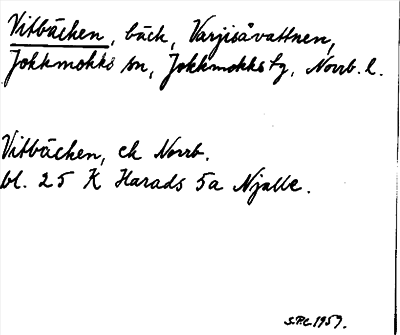 Vitbäcken, bäck, Varjisåvattnen,
Jokkmokks sn, Jokkmokks tg, Norrb. l.
Vitbäcken, ek Norrb.
bl. 25 K Harads 5a Njalle.
S.P.L. 1959.